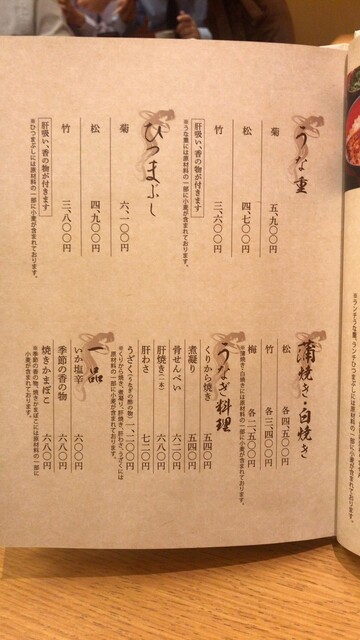 うな重
菊 五、九〇〇円
松 四、七〇〇円
竹 三、六〇〇円
肝吸い、香の物が付きます
※うな重には原材料の一部に小麦が含まれております。
ひつまぶし
菊 六、一〇〇円
松 四、九〇〇円
竹 三、八〇〇円
肝吸い、香の物が付きます
※ひつまぶしには原材料の一部に小麦が含まれております。
蒲焼き・白焼き
松 各四、五〇〇円
竹 各三、四〇〇円
梅 各二、五〇〇円
※蒲焼き・白焼きには原材料の一部に小麦が含まれております。
うなぎ料理
くりから焼き 五四〇円
煮凝り 五四〇円
骨せんべい 六二〇円
肝焼き(一本) 六八〇円
肝わさ 七二〇円
うざく(うなぎの酢の物) 一、二〇〇円
※くりから焼き、煮凝り、肝焼き、肝わさ、うざくには
原材料の一部に小麦が含まれております。
一品
いか塩辛 六〇〇円
季節の香の物 六八〇円
焼きかまぼこ 六八〇円
※季節の香の物、焼きかまぼこには原材料の一部に
小麦が含まれております。